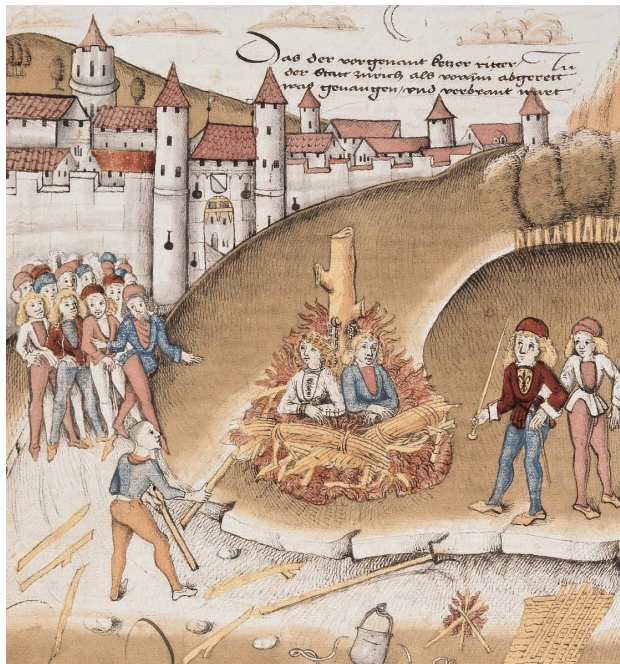 Das der vorgenant ketzer ritter
der Statt zurich als vorgin abgerett
was gefangen / und verbrant wart